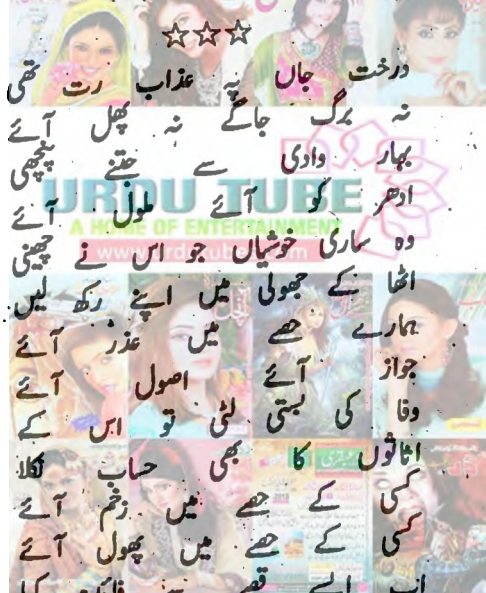 ☆☆☆
درخت جاں پہ عذاب رت تھی
نہ برگ جاگے نہ پھل آئے
بہار وادی سے جتنے پنچھی
ادھر کو آئے ملول آئے
URDU TUBE
A HOME OF ENTERTAINMENT
وہ ساری خوشیاں جو اس نے چھینی
اٹھا کے جھولی میں اپنے رکھ لیں
ہمارے حصے میں عذر آئے
جواز آئے اصول آئے
وفا کی بستی لٹی تو اس کے
اثاثوں کا بھی حساب نکلا
کسی کے حصے میں زخم آئے
کسی کے حصے میں پھول آئے
اب ایسے قصے سے فائدہ کیا